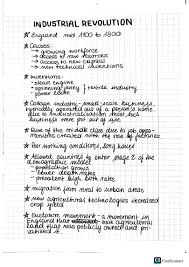 INDUSTRIAL REVOLUTION
★ England mid 1700 to 1800
★ Causes
→ growing workforce
→ access to raw resources
→ access to new capital
→ new technical inventions
★ Inventions
- steam engine
- spinning jenny } textile industry
- power loom
★ Cottage industry - small scale business,
typically operated out of a home
due to industrialisation there
business were put out of use
★ Rise of the middle class due to job oppo-
rtunities created
★ Poor working conditions, long hours
★ Allowed countries to enter stage 2 of the
demographic model
→ population grows
→ lower death rates
→ elevated birth rate
★ migration from rural to urban areas
★ New agricultural technologies increased
crop yields
★ Enclosure movement - a movement in
England that took agricultural
land that was publicly owned and pri-
vatised it
CamScanner